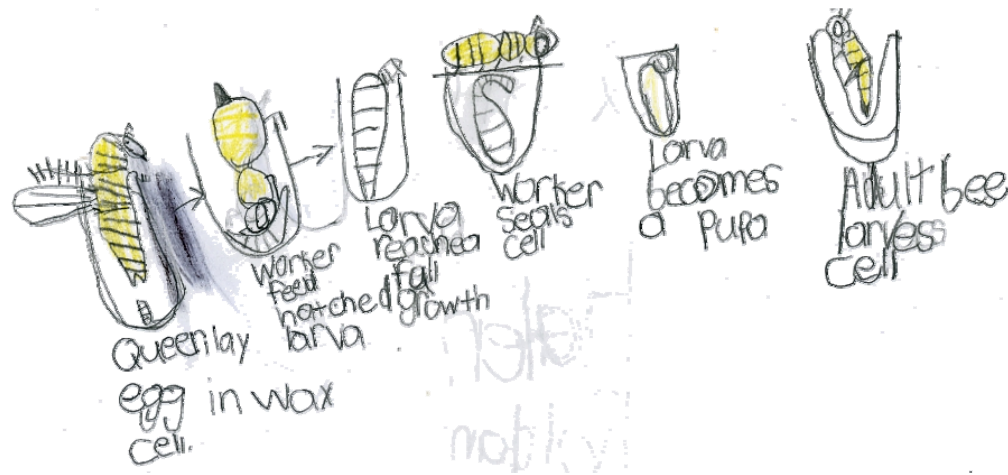 Queen lay
egg in wax
cell.
Worker
feed
hatched
larva
Larva
reachea
full
growth
Worker
seals
cell
Larva
becomes
a pupa
Adult bee
larvess
cell